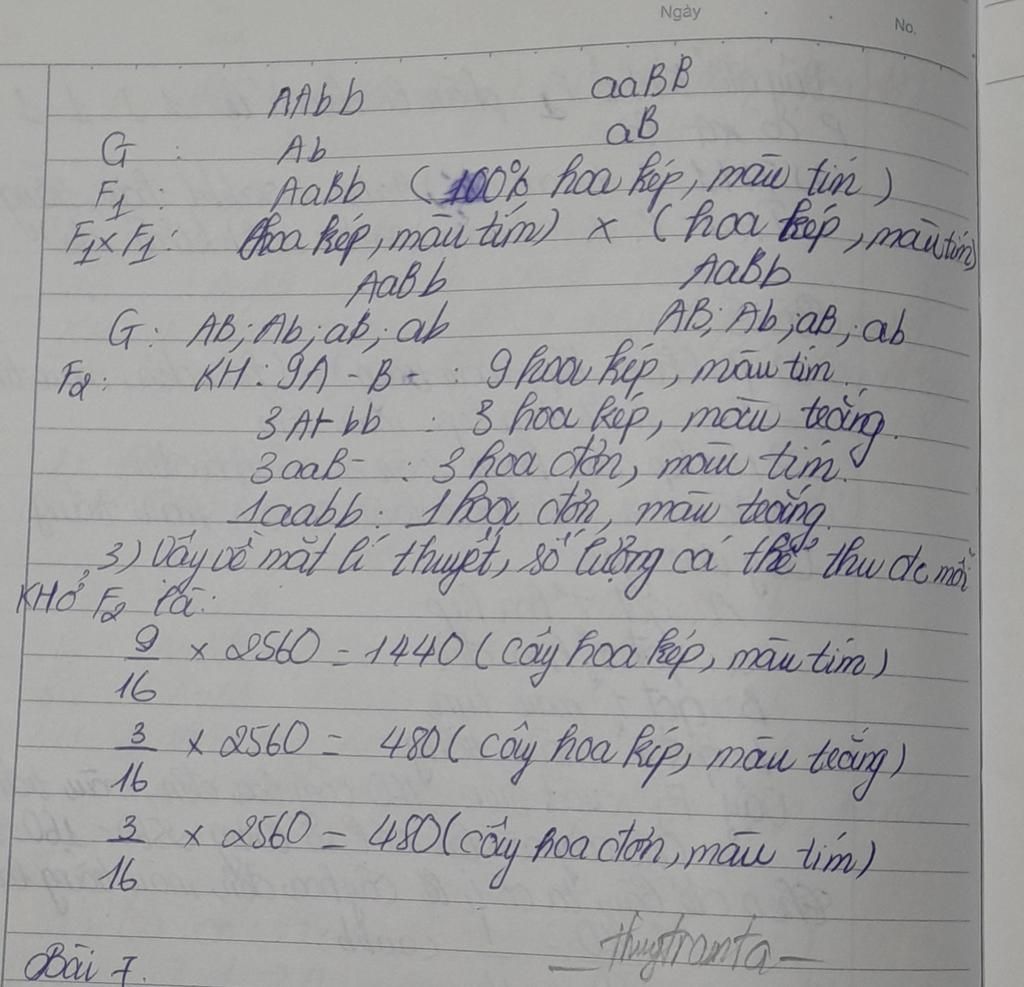 Ngày
No.
AAbb aaBB
G : Ab aB
F1 : AaBb (100% hoa kép, màu tím)
F1 x F1: (hoa kép, màu tím) x (hoa kép, màu tím)
AaBb AaBb
G: AB; Ab; aB; ab AB; Ab; aB; ab
F2: KH: 9A - B - : 9 hoa kép, màu tím.
3A-bb : 3 hoa kép, màu trắng.
3aaB- : 3 hoa đơn, màu tím.
1aabb: 1 hoa đơn, màu trắng.
3) Vậy về mặt lí thuyết, số lượng cá thể thu dc mỗi
KH ở F2 là:
9/16 x 2560 = 1440 (cây hoa kép, màu tím)
3/16 x 2560 = 480 (cây hoa kép, màu trắng)
3/16 x 2560 = 480 (cây hoa đơn, màu tím)
— thuytramta —
Bài 7.